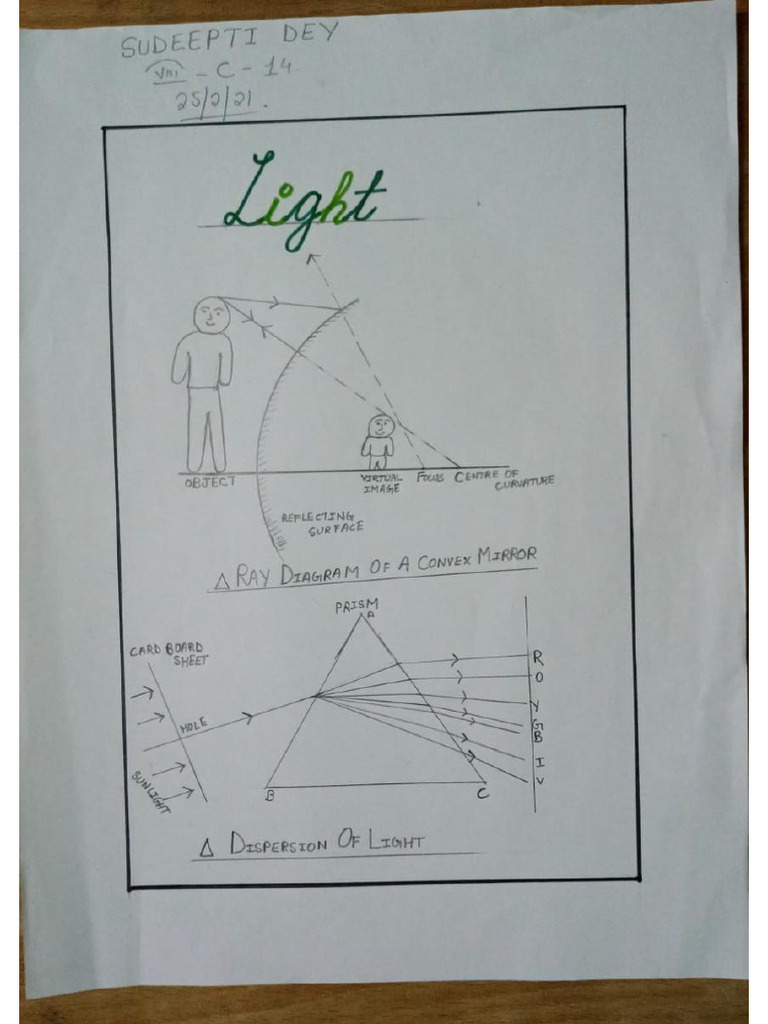 SUDEEPTI DEY
VIII - C - 14
25/2/21.
Light
OBJECT
VIRTUAL
IMAGE
FOCUS
CENTRE OF
CURVATURE
REFLECTING
SURFACE
Δ RAY DIAGRAM OF A CONVEX MIRROR
PRISM
A
CARD BOARD
SHEET
HOLE
SUNLIGHT
R
O
Y
G
B
I
V
B
C
Δ DISPERSION OF LIGHT